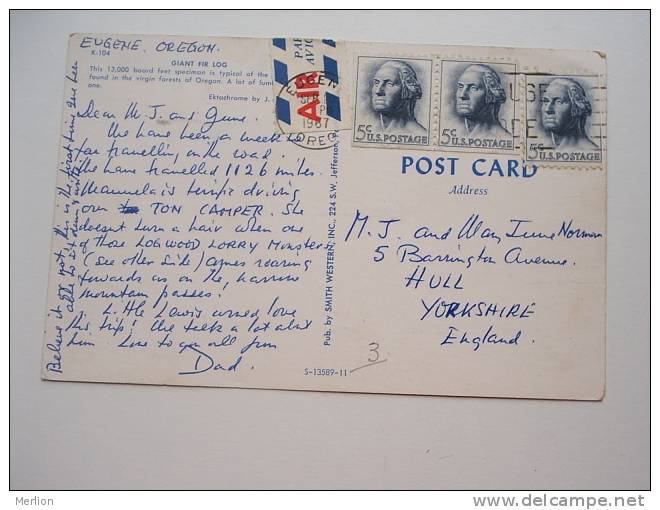 EUGENE, OREGON.
K-104
GIANT FIR LOG
This 13,000 board feet specimen is typical of the
found in the virgin forests of Oregon. A lot of lum
one.
Ektachrome by J.
PAR
AVIO
AIR
EUGEN
SEP
PM
1967
OREG
USE
DE
5c U.S. POSTAGE
5c U.S. POSTAGE
5c U.S. POSTAGE
POST CARD
Address
Dear M. J. and June.
We have been a week so
far travelling on the road.
We have travelled 1126 miles.
Manuela is terrific driving
our TON CAMPER. She
doesn't turn a hair when one
of those LOGWOOD LORRY Monsters
(see other side) comes roaring
towards us on the narrow
mountain passes!
Little Lewis would love
this trip! We talk a lot about
him Love to you all from
Dad.
Believe it or not, this is the first time I've been
able to sit down & write
Pub. by SMITH WESTERN, INC., 224 S.W. Jefferson,
S-13589-11
M. J. and June Norman
5 Barrington Avenue.
HULL
YORKSHIRE
England.
3
Merlion
www.delcampe.net